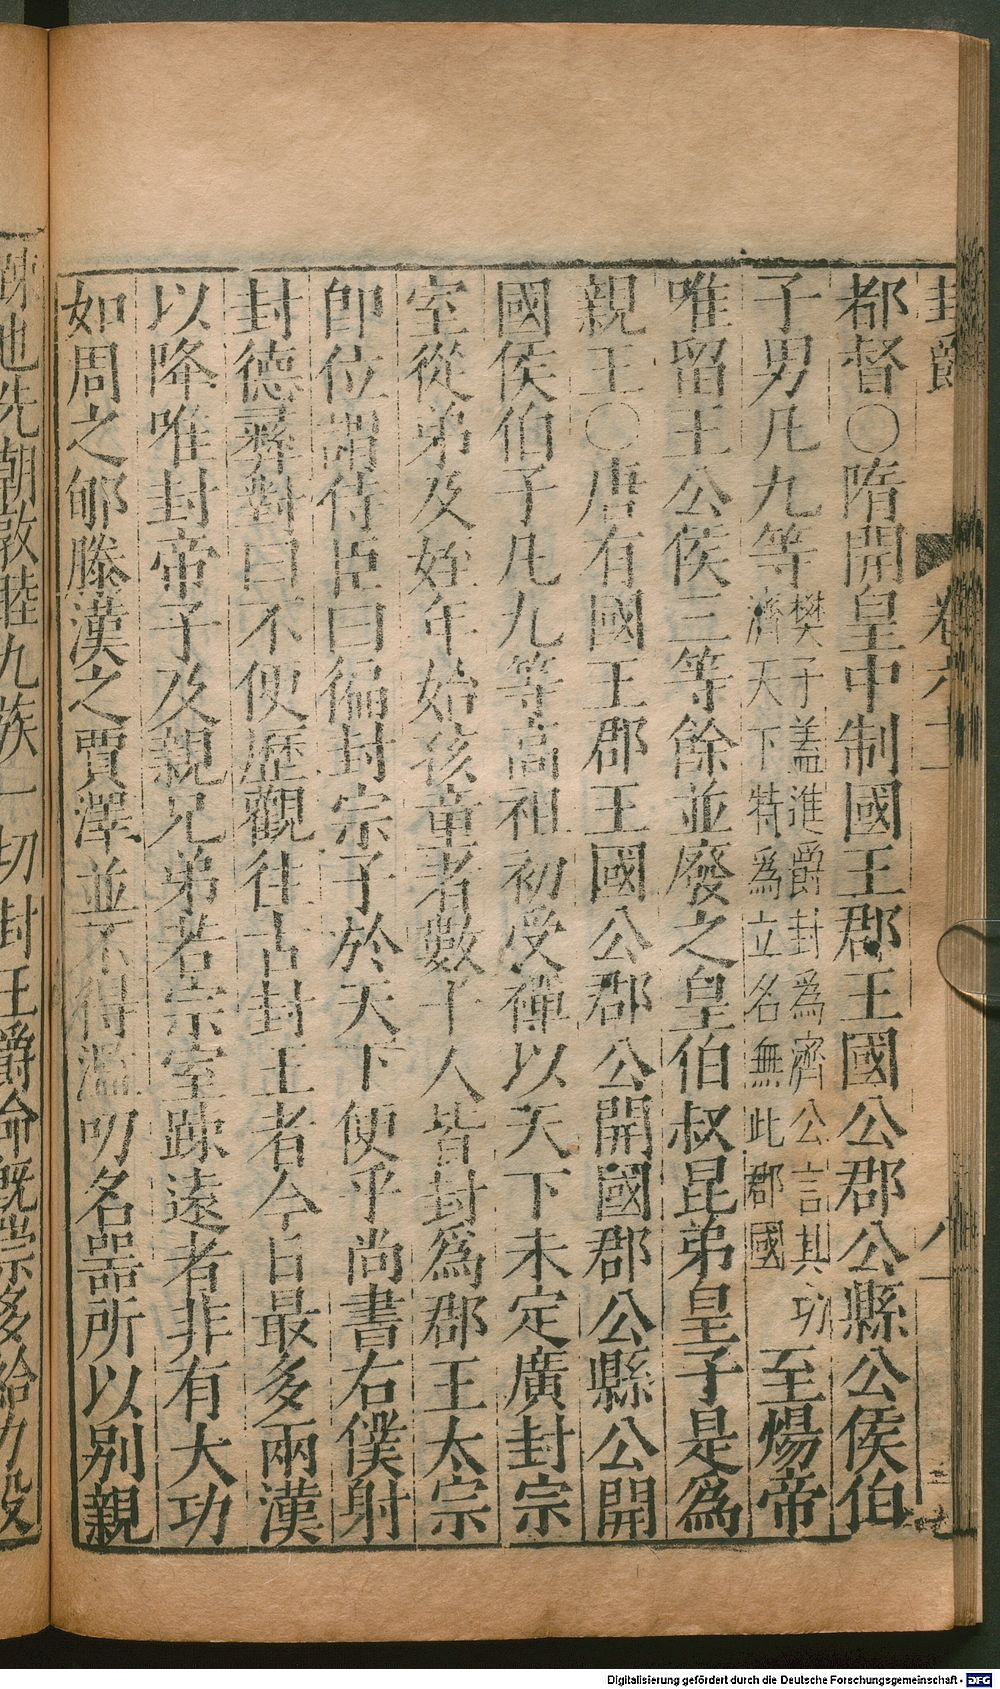 封爵 卷六十 八
都督○隋開皇中制國王郡王國公郡公縣公侯伯
子男凡九等樊子蓋進爵封爲濟公言其功
濟天下特爲立名無此郡國至煬帝
唯留王公侯三等餘並廢之皇伯叔昆弟皇子是爲
親王○唐有國王郡王國公郡公開國郡公縣公開
國侯伯子凡九等高祖初受禪以天下未定廣封宗
室從弟及姪年始孩童者數十人皆封爲郡王太宗
卽位謂侍臣曰徧封宗子於天下便乎尚書右僕射
封德彝對曰不便歷觀往古封王者今日最多兩漢
以降唯封帝子及親兄弟若宗室疎遠者非有大功
如周之郇滕漢之賈澤並不得濫叨名器所以別親
疎也先朝敦睦九族一切封王爵命旣崇多給力役
Digitalisierung gefördert durch die Deutsche Forschungsgemeinschaft - DFG